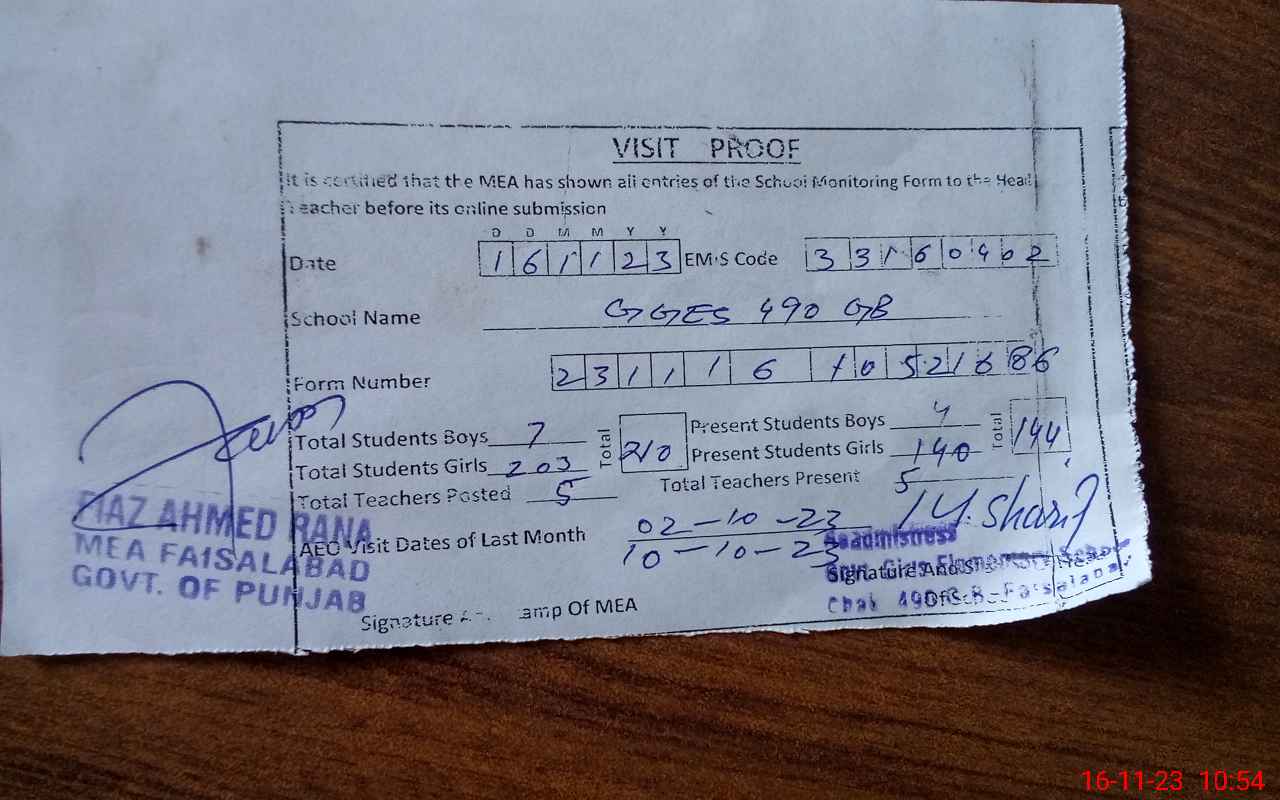 VISIT PROOF
It is certified that the MEA has shown all entries of the School Monitoring Form to the Head
Teacher before its online submission
D D M M Y Y
Date 1 6 1 1 2 3 EMIS Code 3 3 1 6 0 4 0 2
School Name GGES 490 GB
Form Number 2 3 1 1 1 6 1 0 5 2 1 6 86
Total Students Boys 7 Total 210 Present Students Boys 4 Total 144
Total Students Girls 203 Present Students Girls 140
Total Teachers Posted 5 Total Teachers Present 5
AEO Visit Dates of Last Month 02-10-23
10-10-23
M. Sharif
RIAZ AHMED RANA
MEA FAISALABAD
GOVT. OF PUNJAB
Signature Stamp Of MEA
Headmistress
Govt. Girls Elementary School
Chak 490 G.B. Faisalabad
Signature And
16-11-23 10:54